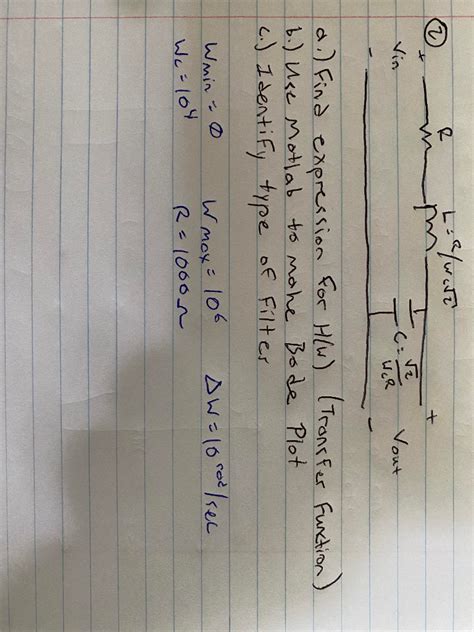 ②
+ R L = R/wc√2 +
Vin C = √2/wcR Vout
- -
a.) Find expression for H(w) (Transfer Function)
b.) Use Matlab to make Bode Plot
c.) Identify type of Filter
Wmin = 0 Wmax = 10⁶ ΔW = 10 rad/sec
Wc = 10⁴ R = 1000Ω